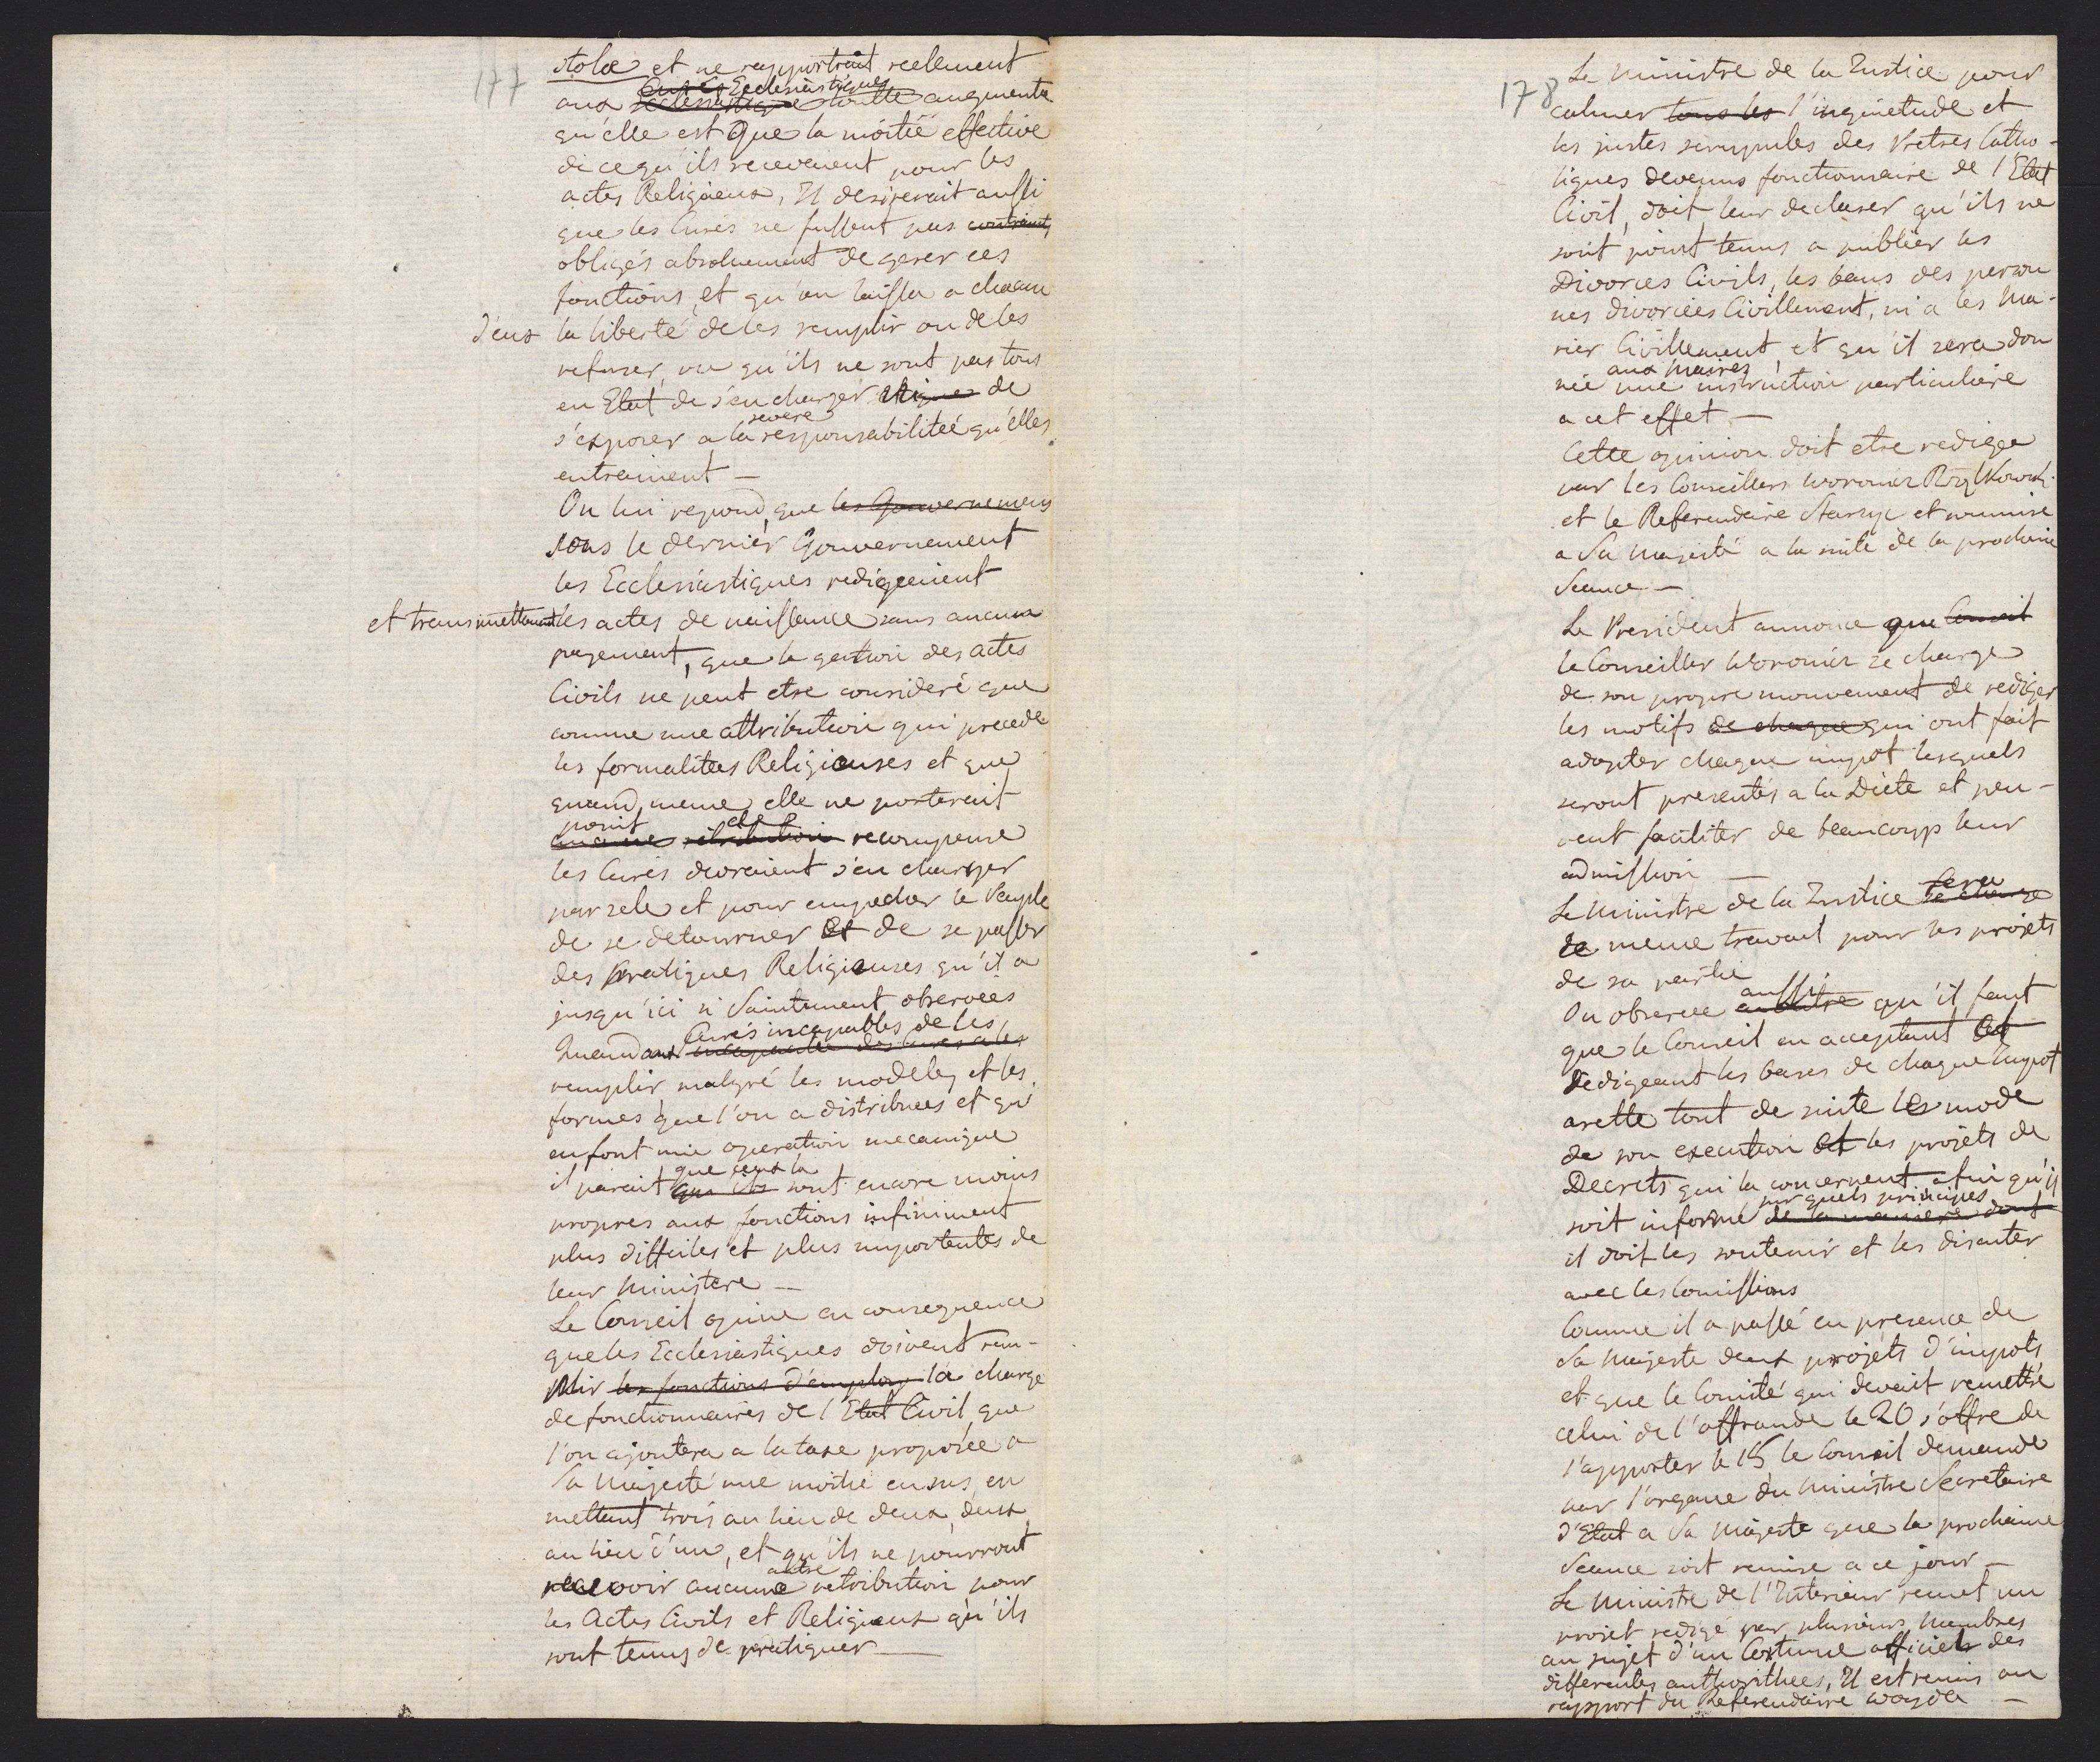 177
stolæ et ne rapportrait reellement
Curés Ecclesiastiques
aux Ecclesiastique augmenta
qu'elle est que la moitié effective
de ce qu'ils recevaient pour les
actes Religieux, Il desirerait aussi
que les Curés ne fussent pas contraint,
obligés absoluement de gerer ces
fonctions et qu'on laissa a chacun
d'eux la liberté de les remplir ou de les
refuser, vu qu'ils ne sont pas tous
en Etat de s'en charger de
severe
s'exposer a la responsabilitée qu'elles
entrainent —
On lui repond, que les Gouvernemens
sous le dernier Gouvernement
les Ecclesiastiques redigeaient
et transmettaient les actes de naissance sans aucun
payement, que la gestion des actes
Civils ne peut etre consideré que
comme une attribution qui precede
les formalitees Religieuses et que
quand meme elle ne porterait
point de
aucune retribution recompense
les Curés devraient s'en charger
par zele et pour empecher le Peuple
de se detourner et de se passer
des pratiques Religieuses qu'il a
jusqu'ici si Saintement observées
Curés incapables de les
Quand aux incapacité des curés a les
remplir malgré les modeles et les
formes que l'on a distribuées et qui
en font une operation mecanique
que ceux la
il parait qu'ils sont encore moins
propres aux fonctions infiniment
plus difficiles et plus importentes de
leur Ministere —
Le Conseil opine en consequence
que les Ecclesiastiques doivent rem-
plir les fonctions d'employ la charge
de fonctionnaires de l'Etat Civil que
l'on ajoutera a la taxe proposée a
Sa Majesté une moitié en sus, en
mettant trois au lieu de deux, deux
au lieu d'un, et qu'ils ne pourront
autre
recevoir aucune retribution pour
les Actes Civils et Religieux qu'ils
sont tenus de pratiquer —
178
Le Ministre de la Justice pour
calmer tous les l'inquietude et
les justes scrupules des Pretres Catho-
liques devenus fonctionnaire de l'Etat
Civil, doit leur declarer qu'ils ne
sont point tenus a publier les
Divorces Civils, les bans des person
nes divorcées Civillement, ni a les Ma-
rier Civillement, et qu'il sera don
aux Maires
née une instruction particuliere
a cet effet —
Cette opinion doit etre redigée
par les Conseillers Woronicz
et le Referendaire et soumise
a Sa Majesté a la suite de la prochaine
Seance —
Le President annonce que Conseil
le Conseiller Woronicz se charge
de son propre mouvement de rediger
les motifs de chaque qui ont fait
adopter chaque impot lesquels
seront presentés a la Diéte et peu-
vent faciliter de beaucoup leur
admission —
fera
Le Ministre de la Justice se charge
de meme travail pour les projets
de sa partie
aussi
On observe en outre qu'il faut
que le Conseil en acceptant et
redigeant les bases de chaque Impot
arette tout de suite les mode
de son execution et les projets de
Decrets qui la concernent afin qu'il
par quels principes
soit informé de la maniere dont
il doit les soutenir et les discuter
avec les Comissions
Comme il a passé en presence de
Sa Majeste deux projets d'impots
et que le Comité qui devait remettre
celui de l'offrande le 20 s'offre de
l'apporter le 15 le Conseil demande
par l'organe du Ministre Secretaire
d'Etat a Sa Majeste que la prochaine
Seance soit remise a ce jour —
Le Ministre de l'Interieur remet un
projet redigé par plusieurs Membres
au sujet d'un Costume officiel des
differentes authorithees, Il est remis au
rapport du Referendaire Woyda —